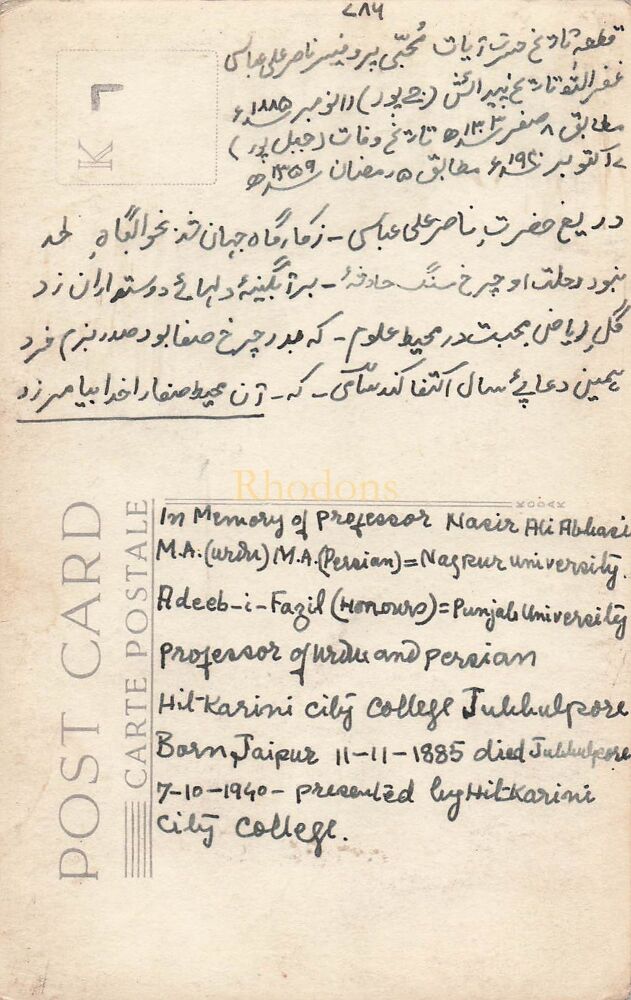 ۷۸۶
قطعہ تاریخ حسرت آیات مُحبّی پروفیسر ناصر علی عباسی
غفراللہ تاریخ پیدائش (جے پور) ۱۱ نومبر ۱۸۸۵ء
مطابق ۸ صفر ۱۳۰۳ھ تاریخ وفات (جبل پور)
۷ اکتوبر ۱۹۴۰ء مطابق ۵ رمضان ۱۳۵۹ھ
دریغ حضرت ناصر علی عباسی - ز کارگاہ جہان شد بخوابگاہِ لحد
نمود رحلت او چرخ سنگ حادثۂ - بر آبگینۂ دلہائے دوستداران زد
گلِ ریاض محبت در محیط علوم - کہ بدر چرخ صفا بود صدر بزم خرد
ہمین دعا پئے سال اکتفا کند - کہ - آن محیط صفا را خدا بیامرزد
K
Rhodons
KODAK
POST CARD
CARTE POSTALE
In Memory of Professor Nasir Ali Abbasi
M.A.(urdu) M.A.(Persian)=Nagpur university.
Adeeb-i-Fazil (Honours)=Punjab University
Professor of urdu and persian
Hit-Karini city College Jubbulpore
Born, Jaipur 11-11-1885 died Jubbulpore
7-10-1940- presented by Hit-Karini
City College.